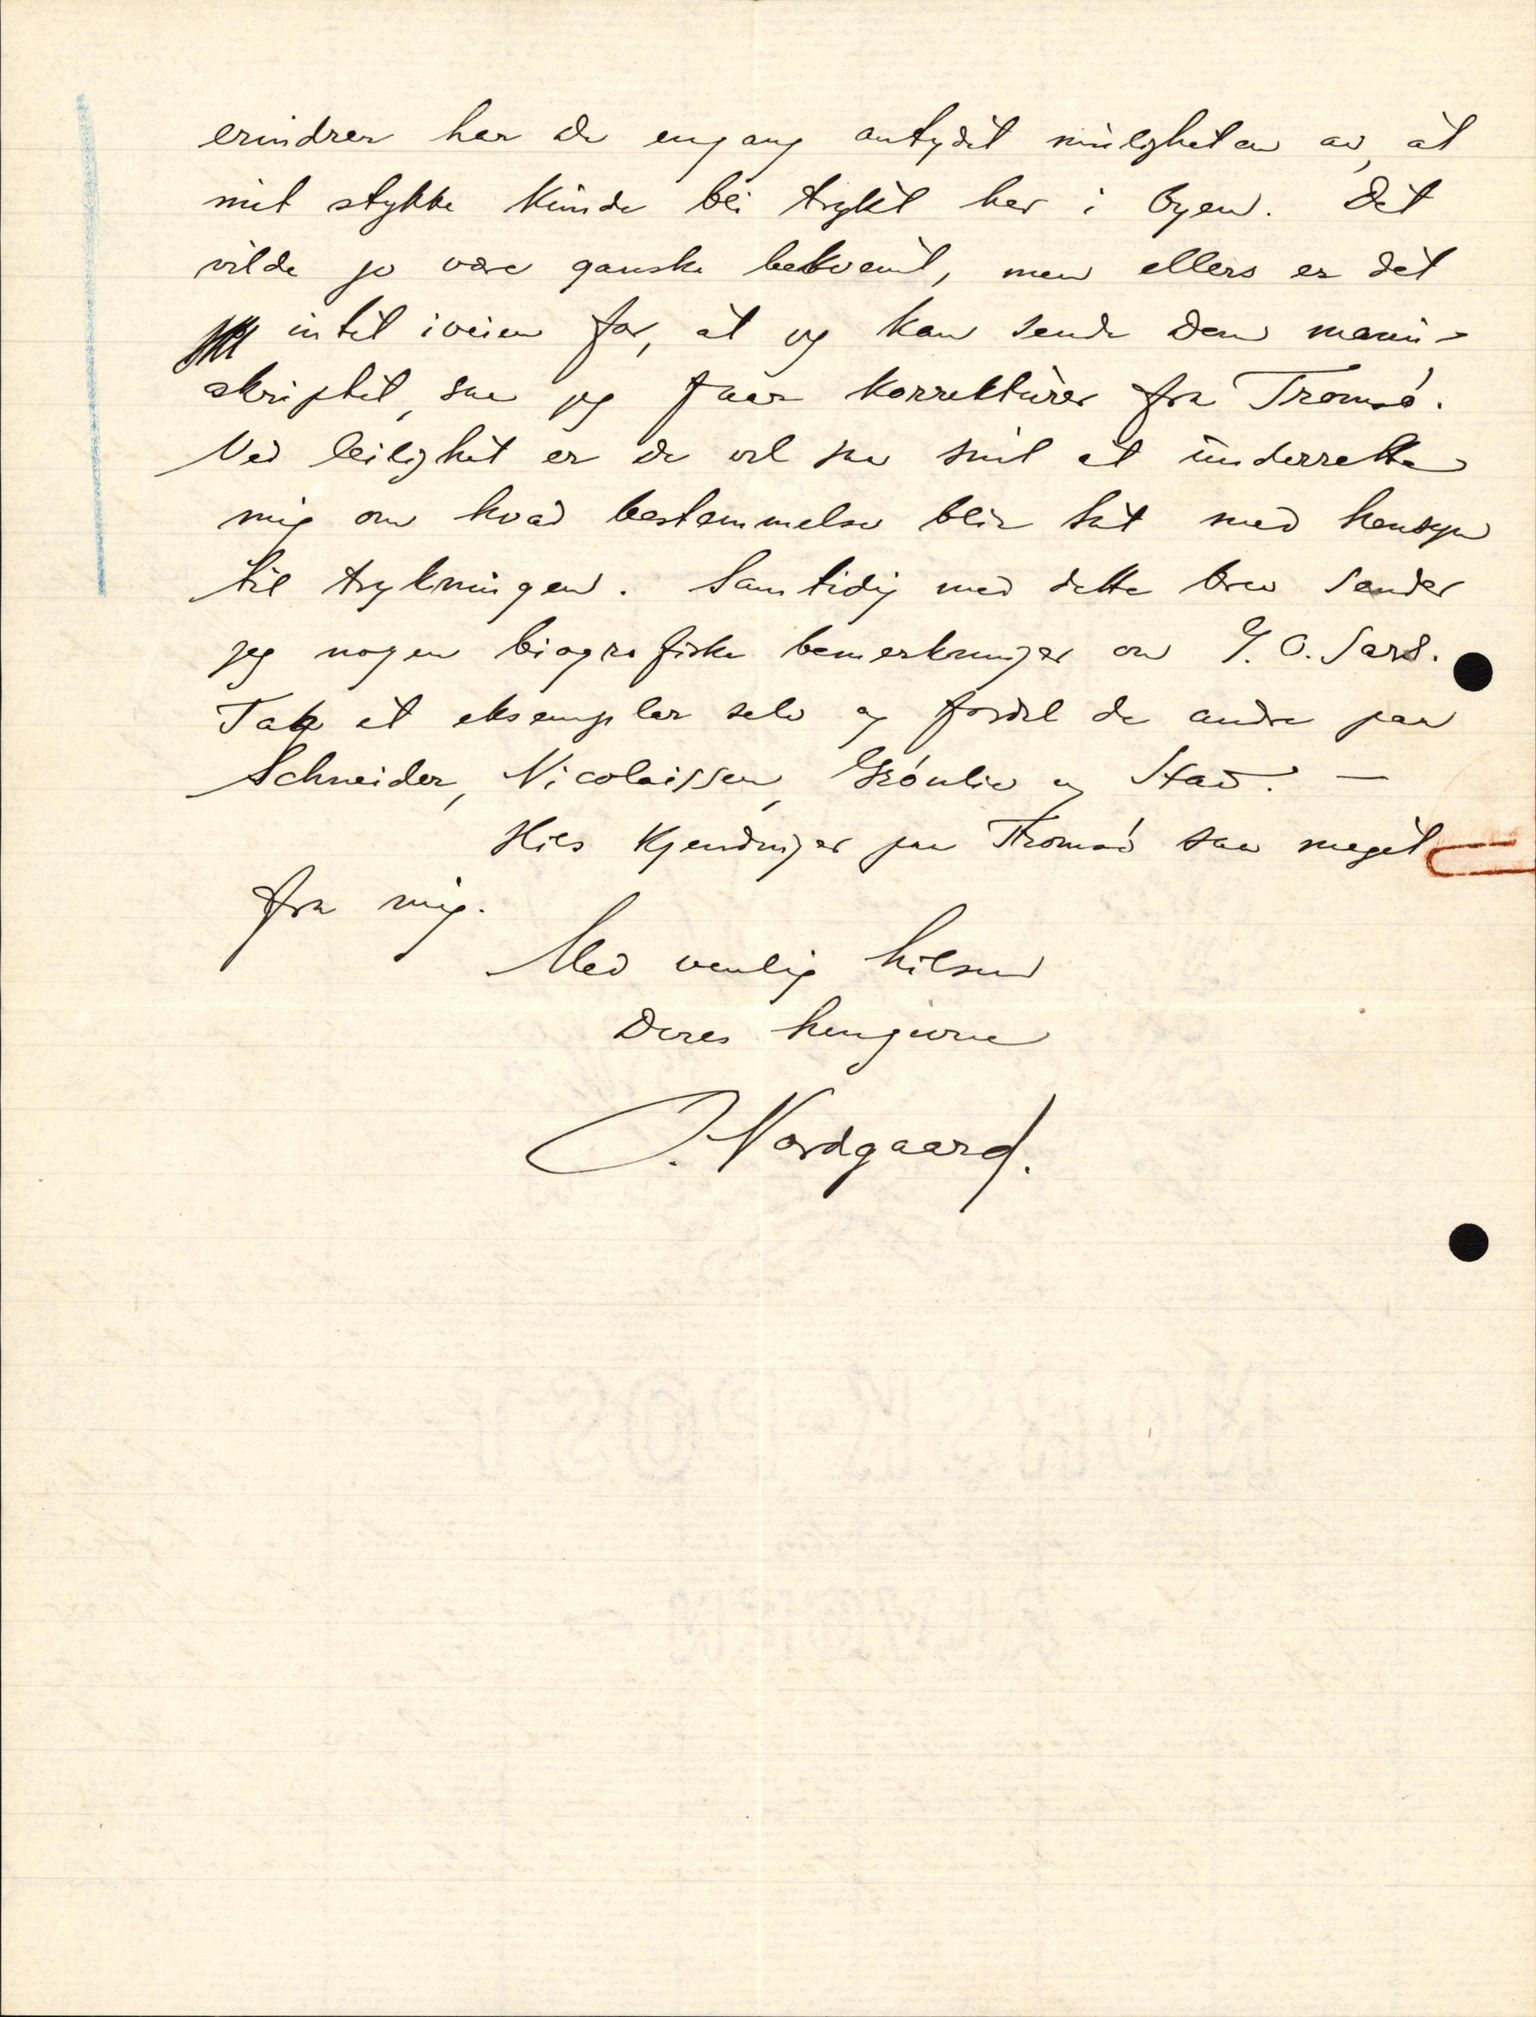 erindrer har De engang antydet muligheten av, at
mit stykke kunde bli trykt her i byen. Det
vilde jo være ganske bekvemt, men ellers er det
intet iveien for, at jeg kan sende Dem manu-
skriptet, saa jeg faar korrekturer fra Tromsø.
Ved leilighet er De vel saa snil at underrette
mig om hvad bestemmelse blir tat med hensyn
til trykningen. Samtidig med dette brev sender
jeg nogen biografiske bemerkninger om G. O. Sars.
Tak et eksemplar selv og fordel de andre paa
Schneider, Nicolaissen, Grönlie og Stav. —
Hils kjendinger paa Tromsø saa meget
fra mig.
Med venlig hilsen
Deres hengivne
O. Nordgaard.